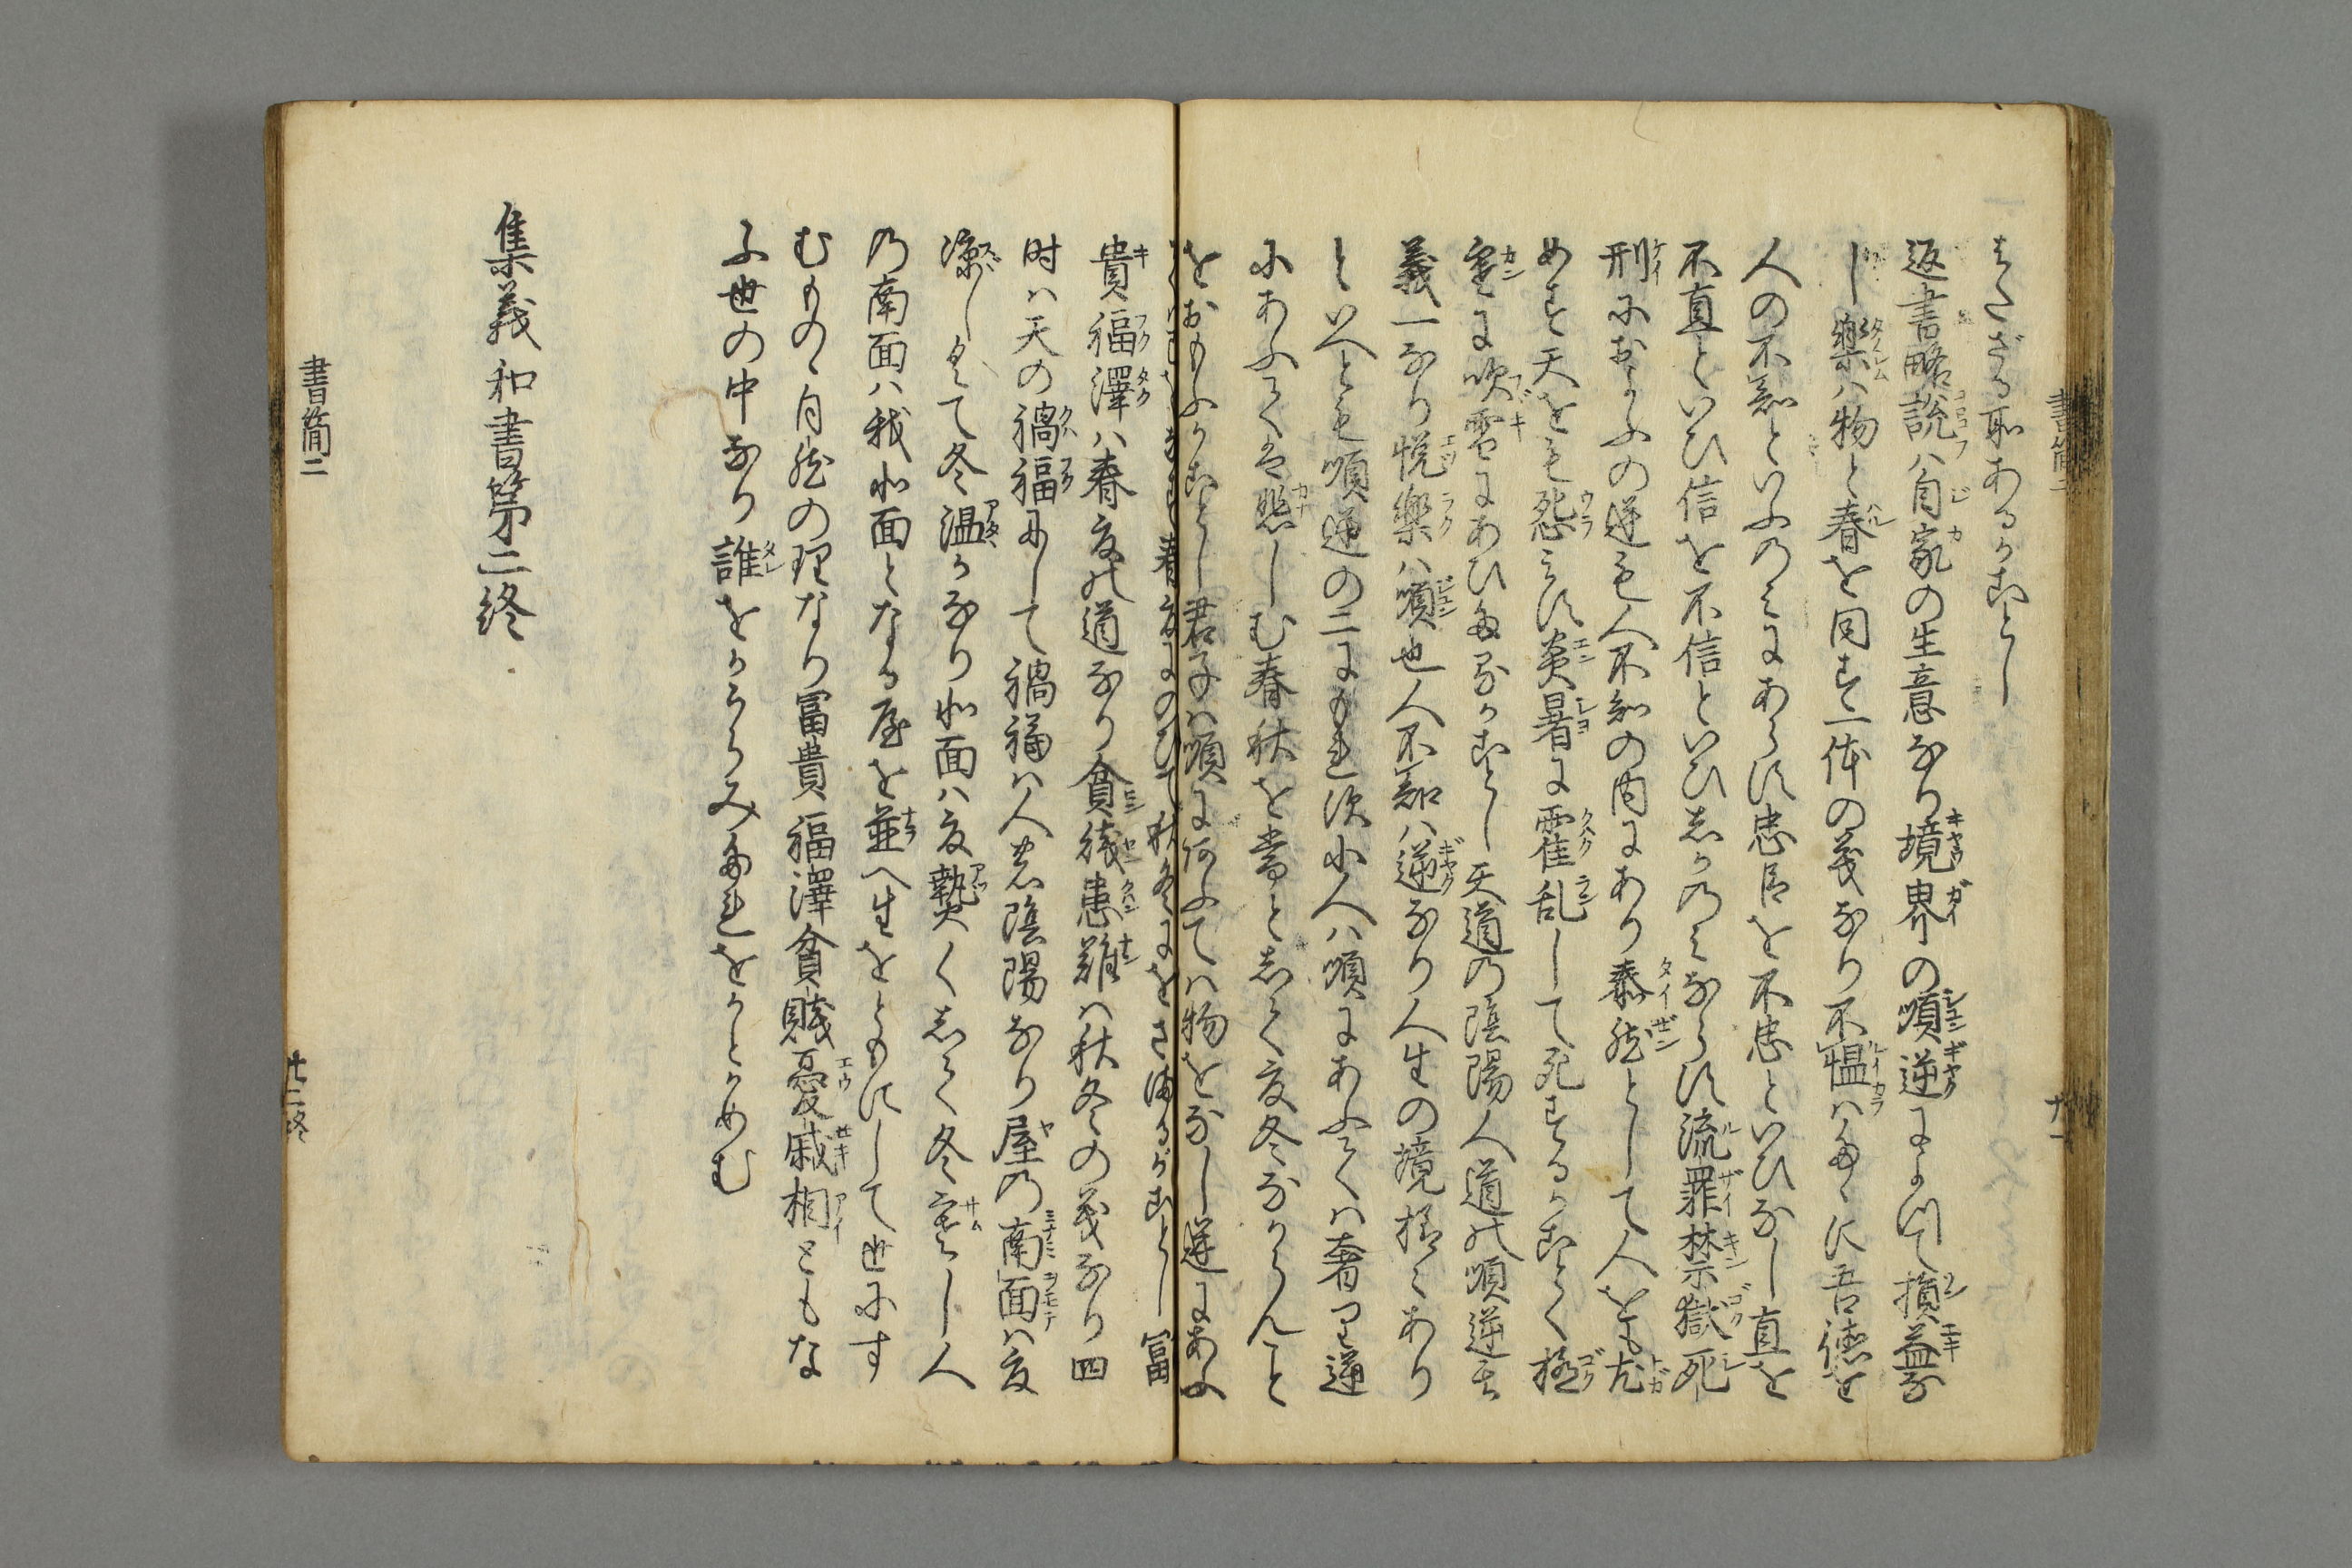 またざる恥あるかごとし
返書略説ハ自家の生意なり境界の順逆によつて損益な
し楽ハ物と春を同す一体の義なり不慍ハたゝに吾徳を
人の不知といふのみにあらす忠臣を不忠といひなし直を
不直といひ信を不信といひしかのみならす流罪禁獄死
刑におよふの逆も人不知の内にあり泰然として人をも尤
めす天をも怨みす炎暑に霍乱して死するかことく極
寒に吹雪にあひたるかことし天道の陰陽人道の順逆其
義一なり悦楽ハ順也人不知ハ逆なり人生の境様々あり
といへとも順逆の二にもれす小人ハ順にあふてハ奢り逆
にあふてハ悲しむ春秋を常としてて夏冬なからんこと
をおもふかことし君子ハ順にあふてハ物をなし逆にあふ
春夏にのひて秋冬にをさまるがごとし冨
貴福澤ハ春夏の道なり貧賤患難ハ秋冬の義なり四
时ハ天の禍福にして禍福ハ人の陰陽なり屋の南面ハ夏
涼しくて冬温かなり北面ハ夏𤍠くして冬寒し人
の南面ハ我北面となる屋を並へ生をともにして世にす
むものゝ自然の理なり冨貴福澤貧賤憂戚相ともな
ふ世の中なり誰をかうらみたれをかとかめむ
集義和書第二終
書簡二
廿二終